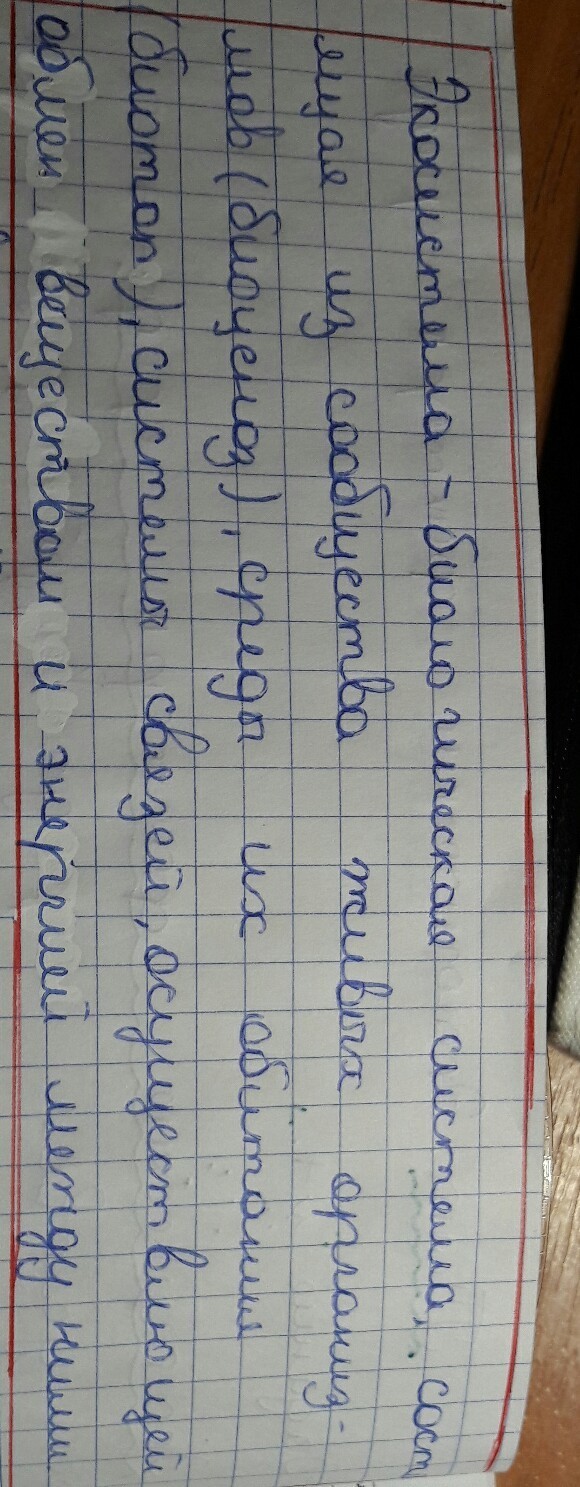 Экосистема - биологическая система, сост
ящая из сообщества живых организ-
мов (биоценоз), среды их обитания
(биотоп), системы связей, осуществляющей
обмен веществом и энергией между ними